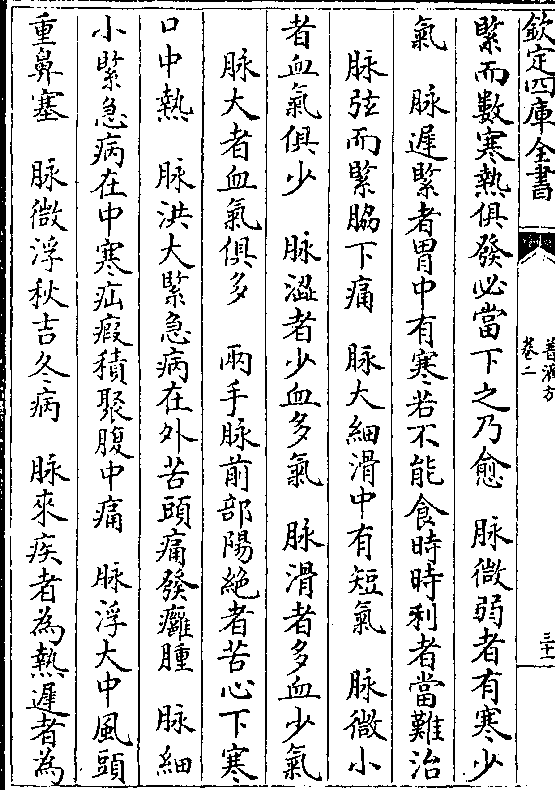 欽定四庫全書
普濟方
卷二
三十一
緊而數寒熱俱發必當下之乃愈　脈微弱者有寒少
氣　脈遲緊者胃中有寒若不能食時時利者當難治
脈弦而緊脇下痛　脈大細滑中有短氣　脈微小
者血氣俱少　脈澀者少血多氣　脈滑者多血少氣
脈大者血氣俱多　兩手脈前部陽絶者苦心下寒
口中熱　脈洪大緊急病在外苦頭痛發癰腫　脈細
小緊急病在中寒疝瘕積聚腹中痛　脈浮大中風頭
重鼻塞　脈微浮秋吉冬病　脈來疾者為熱遲者為